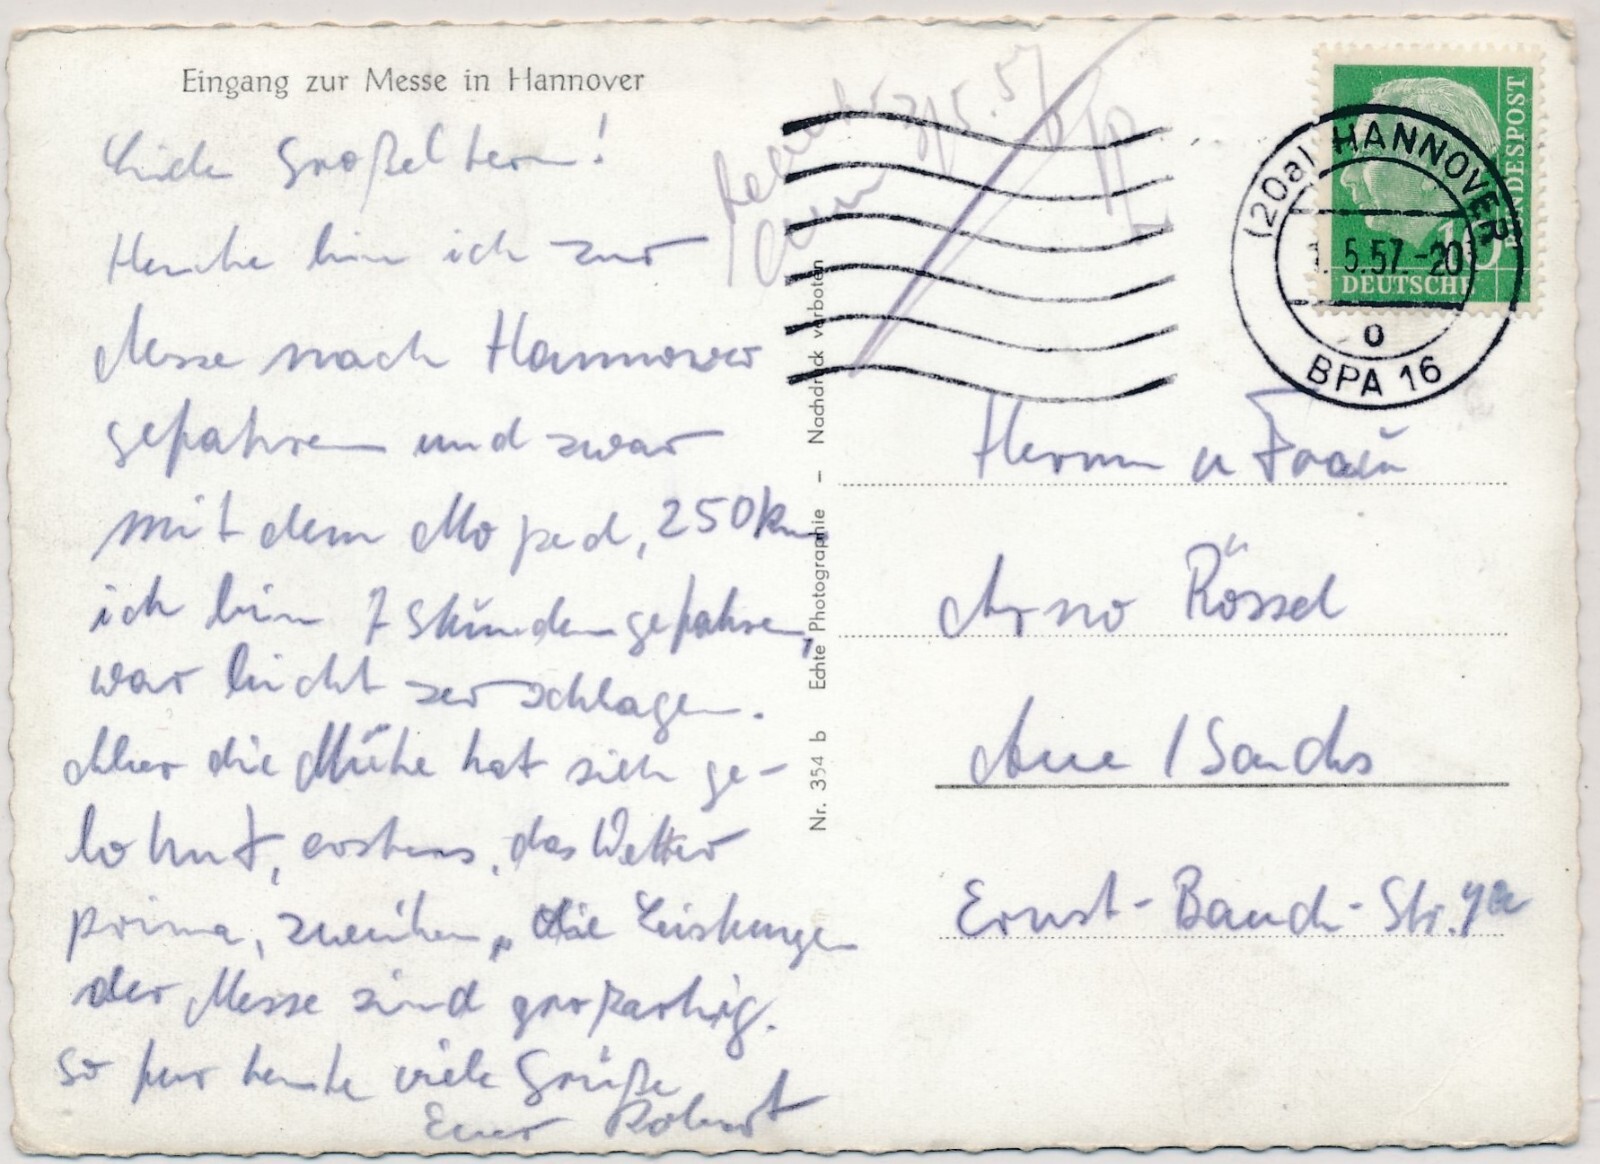 Eingang zur Messe in Hannover
Liebe Großeltern!
Heute bin ich zur
Messe nach Hannover
gefahren und zwar
mit dem Moped, 250 km,
ich bin 7 Stunden gefahren,
war leicht zerschlagen.
Aber die Mühe hat sich ge-
lohnt, erstens, das Wetter
prima, zweitens, die Leistungen
der Messe sind großartig.
So für heute viele Grüße
Euer Robert
5.57
Nr. 354 b Echte Photographie – Nachdruck verboten
(20a) HANNOVER
5.57.-20
o
BPA 16
DEUTSCHE
BUNDESPOST
10
Herrn u Frau
Arno Rössel
Aue / Sachs
Ernst-Bauch-Str.